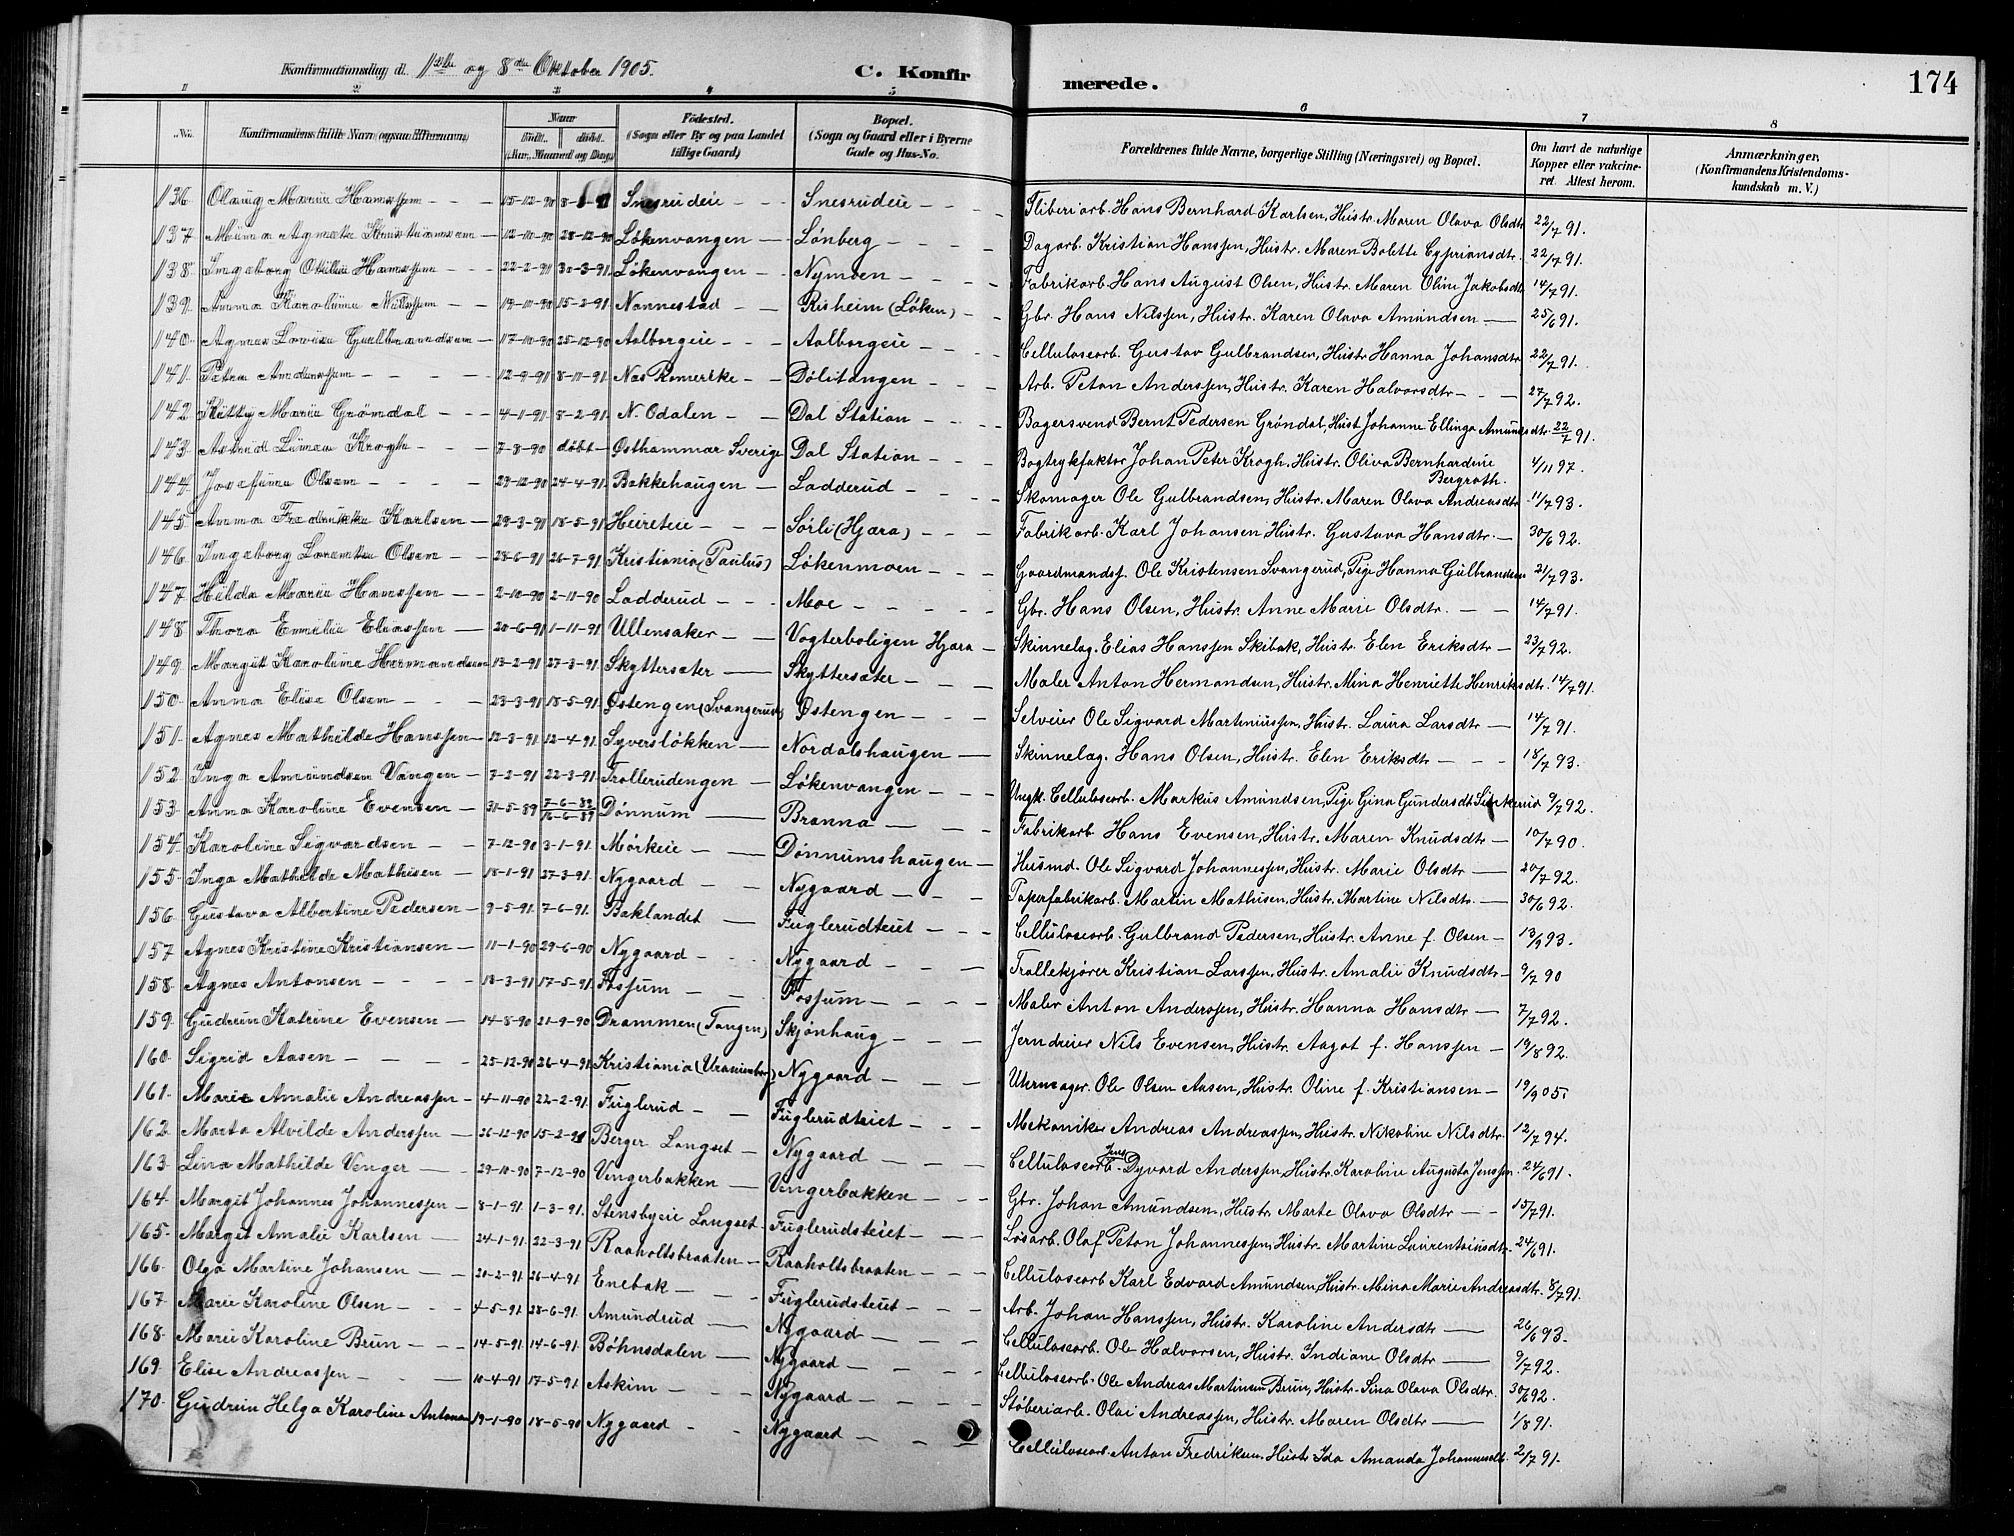 Konfirmationsdag d. 1ste og 8de Oktober 1905.
C. Konfirmerede.
174
1 2 3 4 5 6 7 8
No.
Konfirmandens fulde Navn (ogsaa Efternavn)
Naar
født. døbt.
(Aar, Maaned og Dag.)
Fødested.
(Sogn eller By og paa Landet tillige Gaard)
Bopæl.
(Sogn og Gaard eller i Byerne Gade og Hus-No.
Forældrenes fulde Navne, borgerlige Stilling (Næringsvei) og Bopæl.
Om havt de naturlige Kopper eller vakcineret. Attest herom.
Anmærkninger,
(Konfirmandens Kristendomskundskab m. V.)
136. Olaug Marie Hanssen 15-12-90 Snesrudeie Snesrudeie Hans Bernhard Karlsen, Hustr. Maren Olava Olsdtr 22/7 91.
137. Agnete Kristiansen 12-10-90 28-12-90 Løkenvangen Lønberg Dagarb. Kristian Hanssen, Hustr. Maren Bolette Cypriansdtr. 22/7 91.
138. Ingeborg Otilie Hanssen 22-2-91 30-3-91 Løkenvangen Nymoen Fabrikarb. Hans August Olsen, Hustr. Maren Oline Jakobsdtr 14/7 91.
139. Anna Karoline Nilssen 19-10-90 15-2-91 Nannestad Risheim (Løken) Gbr. Hans Nilssen, Hustr. Karen Olava Amundsen 25/6 91.
140. Agnes Lovise Gulbrandsen 17-10-90 25-12-90 Aalborgeie Aalborgeie Cellulosearb. Gustav Gulbrandsen, Hustr Hanna Johansdtr 22/7 91.
141. Petra Anderssen 12-9-91 8-11-91 Nes Romerike Dølitangen Arb. Peton Anderssen, Hustr. Karen Halvorsdtr 27/7 92.
142. Kitty Marie Grøndal 4-1-91 8-2-91 N. Odalen Dal Station Bagersvend Bernt Pedersen Grøndal, Hust Johanne Ellinga Amundsdtr. 22/7 91.
143. Astrid Linea Krogh 7-8-90 døbt Østhammar Sverige Dal Station Bogtrykfaktor Johan Peter Krogh, Hustr. Oliva Bernhardine Bergroth. 4/11 97.
144. Josefine Olsen 29-12-90 24-4-91 Bakkehaugen Ladderud Skomager Ole Gulbrandsen, Hustr. Maren Olava Andreasdtr 11/7 93.
145. Anna Fredrikke Karlsen 29-3-91 18-5-91 Heieteie Sørli (Hjøra) Fabrikarb. Karl Johansen Hustr. Gustava Hansdtr. 30/6 92.
146. Ingeborg Lorentse Olsen 28-6-91 26-7-91 Kristiania (Paulus) Løkenmoen Gaardmandss. Ole Kristensen Svangerud, Pige Hanna Gulbrandsen 21/7 93.
147. Hilda Marie Hanssen 2-10-90 2-11-90 Ladderud Moe Gbr. Hans Olsen, Hustr. Anne Marie Olsdtr. 14/7 91.
148. Thora Emilie Eliassen 20-6-91 1-11-91 Ullensaker Vogterboligen Hjøra Skinnelag. Elias Hanssen Skibak, Hustr. Elen Eriksdtr 23/7 92.
149. Margit Karoline Hermandsen 13-2-91 27-3-91 Skyttersæter Skyttersæter Maler Anton Hermandsen, Hustr. Mina Henriette Henriksdtr. 14/7 91.
150. Anna Elise Olsen 23-3-91 18-5-91 Østengen (Svangerud) Østengen Selveier Ole Sigvard Martiniussen, Hustr. Laura Larsdtr 14/7 91.
151. Agnes Mathilde Hanssen 12-3-91 12-4-91 Syversløkken Nordalshaugen Skinnelæg. Hans Olsen, Hustr. Elen Eriksdtr 18/7 93.
152 Inga Amundsen Vangen 7-2-91 22-3-91 Trollerudengen Løkenvangen Ungk. Cellulosearb. Markus Amundsen, Pige Gina Gundersdtr 9/7 92.
153. Anna Karoline Evensen 31-5-89 7-6-89 16-6-89 Dønnum Brænna Fabrikarb Hans Evensen, Hustr. Maren Knudsdtr 10/7 90.
154. Karoline Sigvardsen 7-12-90 3-1-91. Mørkeie Dønnumshaugen Husmd. Ole Sigvard Johannessen, Hustr. Marie Olsdtr 20/7 92.
155. Inga Mathilde Mathisen 18-1-91 27-3-91. Nygaard Nygaard Papirfabrikarb. Martin Mathisen, Hustr. Martine Nilsdtr. 30/6 92.
156. Gustava Albertine Pedersen 9-5-91. 7-6-91. Baklandet Fuglerudteiet Cellulosearb. Gulbrand Pedersen, Hustr. Anne f. Olsen 13/9 93.
157 Agnes Kristine Kristiansen 11-1-90 29-6-90 Nygaard Nygaard Trallekjører Kristian Larssen, Hustr. Amalie Knudsdtr 9/7 90
158. Agnes Antonsen 18-3-91 17-5-91. Fossum Fossum Maler Anton Anderssen, Hustr. Hanna Hansdtr 7/7 92.
159. Gudrun Katrine Evensen 14-8-90 21-9-90 Drammen (Tangen) Skjønhaug Jerndreier Nils Evensen, Hustr. Aagot f. Hanssen 19/8 92.
160. Sigrid Aasen 25-12-90 26-4-91. Kristiania (Uranienborg) Nygaard Uhrmager. Ole Olsen Aasen, Hustr. Oline f. Kristiansen 19/9 05
161. Marie Amalie Andreassen 4-11-90 22-2-91. Fuglerud Fuglerudteiet Mekaniker Andreas Andreassen, Hustr. Nikoline Nilsdtr. 12/7 94.
162. Marta Alvilde Anderssen 26-12-90 15-2-91 Berger Langset Nygaard Cellulosearb. Jens Dyvard Anderssen, Hustr. Karoline Augusta Jenssen. 24/6 91.
163. Lina Mathilde Venger 29-10-90 7-12-90 Vengerbakken Vengerbakken Gbr. Johan Amundsen, Hustr Marte Olava Olsdtr 15/7 91.
164. Margit Johannes Johannessen 8-1-91. 1-3-91. Stensbyeie Langset Fuglerudsteiet Løsarb. Olaf Peton Johannessen, Hustr. Martine Laurentsiusdtr. 24/6 91.
165. Margit Amalie Karlsen 24-1-91. 22-3-91 Raaholtsbraaten Raaholtsbraaten Cellulosearb Karl Edvard Amundsen, Hustr. Mina Marie Andreasdtr. 8/7 91.
166. Olga Martine Johansen 20-2-91. 26-4-91. Enebak Fuglerudsteiet Arb. Johan Hanssen, Hustr. Karoline Andersdtr 26/6 93.
167. Marie Karoline Olsen 4-5-91. 28-6-91. Amundrud Nygaard Cellulosearb. Ole Halvorsen, Hustr. Indiane Olsdtr 9/7 92.
168. Marie Karoline Brun 14-5-91. 14-6-91. Bøhnsdalen Nygaard Cellulosearb. Ole Andreas Martinsen Brun, Hustr. Sina Olava Olsdtr. 30/6 92.
169. Elise Andreassen 10-4-91 17-5-91. Askim Nygaard Støberiarb. Olai Andreassen, Hustr. Maren Olsdtr 1/8 91.
170. Gudrun Helga Karoline Antonsen 19-1-90 18-5-90 Nygaard Nygaard Cellulosearb. Anton Fredriksen, Hustr Ida Amanda Johannesdtr. 2/7 91.